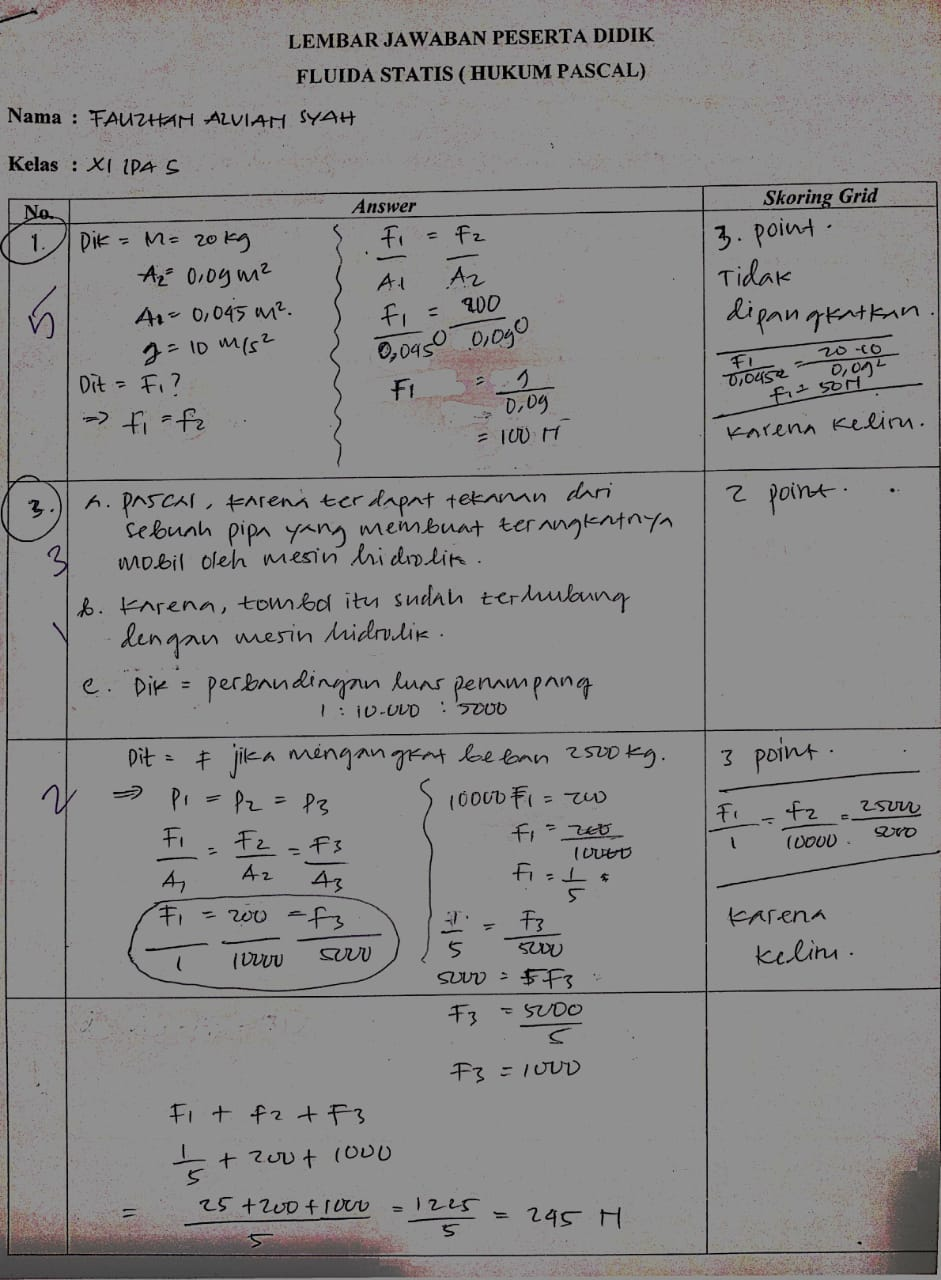 LEMBAR JAWABAN PESERTA DIDIK
FLUIDA STATIS ( HUKUM PASCAL)
Nama : FAUZHAN ALVIAN SYAH
Kelas : XI IPA 5
No. Answer Skoring Grid
1.
5
Dik = M = 20 kg
A2 = 0,09 m²
A1 = 0,045 m².
g = 10 m/s²
Dit = F1 ?
=> F1 = F2
F1 / A1 = F2 / A2
F1 / 0,045 = 200 / 0,09
F1 = 9 / 0,09
= 100 N
3. point.
Tidak
dipangkatkan.
F1 / 0,045² = 20.10 / 0,09²
F1 = 50 N
Karena Keliru.
3.
3
a. PASCAL, karena terdapat tekanan dari
sebuah pipa yang membuat terangkatnya
mobil oleh mesin hidrolik.
1
b. Karena, tombol itu sudah terhubung
dengan mesin hidrolik.
c. Dik = perbandingan luas penampang
1 : 10.000 : 5000
2 point.
2
Dit = F jika mengangkat beban 2500 kg.
=> P1 = P2 = P3
F1 / A1 = F2 / A2 = F3 / A3
F1 / 1 = 200 / 10000 = F3 / 5000
10000 F1 = 200
F1 = 200 / 10000
F1 = 1 / 5
1 / 5 = F3 / 5000
5000 = 5 F3
3 point.
F1 / 1 = F2 / 10000 = 25000 / 5000
Karena
Keliru.
F3 = 5000 / 5
F3 = 1000
F1 + F2 + F3
1 / 5 + 200 + 1000
= 25 + 200 + 1000 / 5 = 1225 / 5 = 245 N